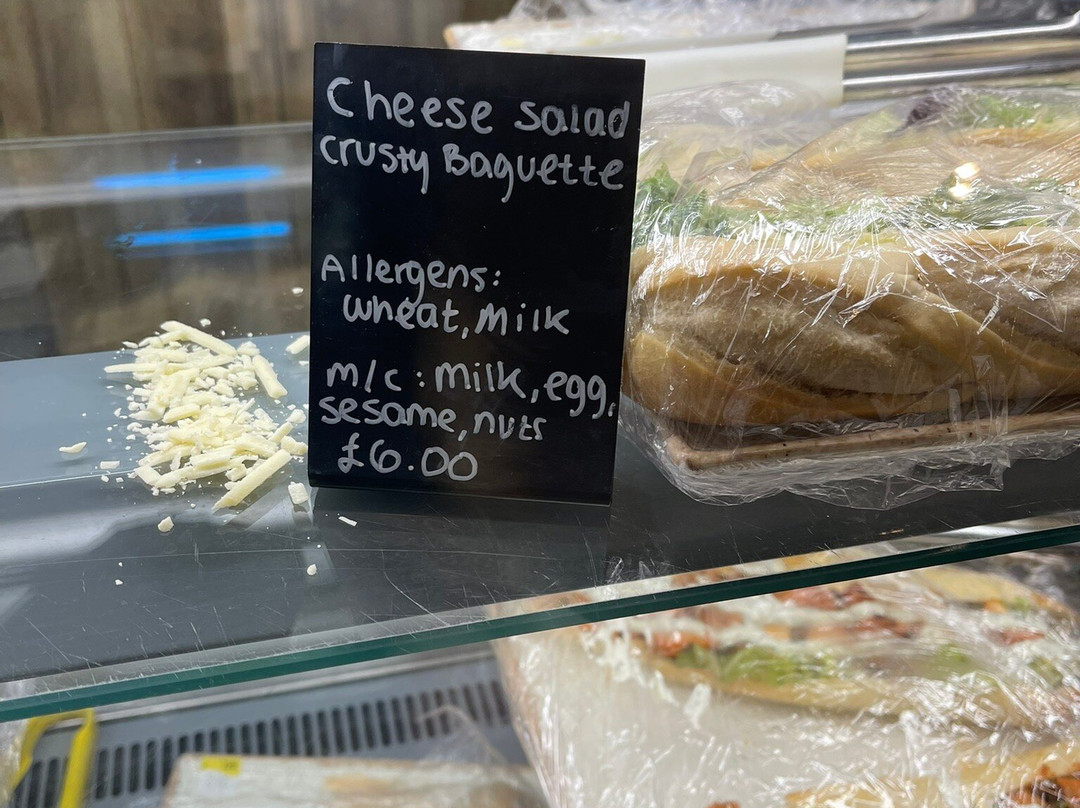 Cheese salad
crusty Baguette
Allergens:
wheat, Milk
m/c: Milk, egg,
sesame, nuts
£6.00